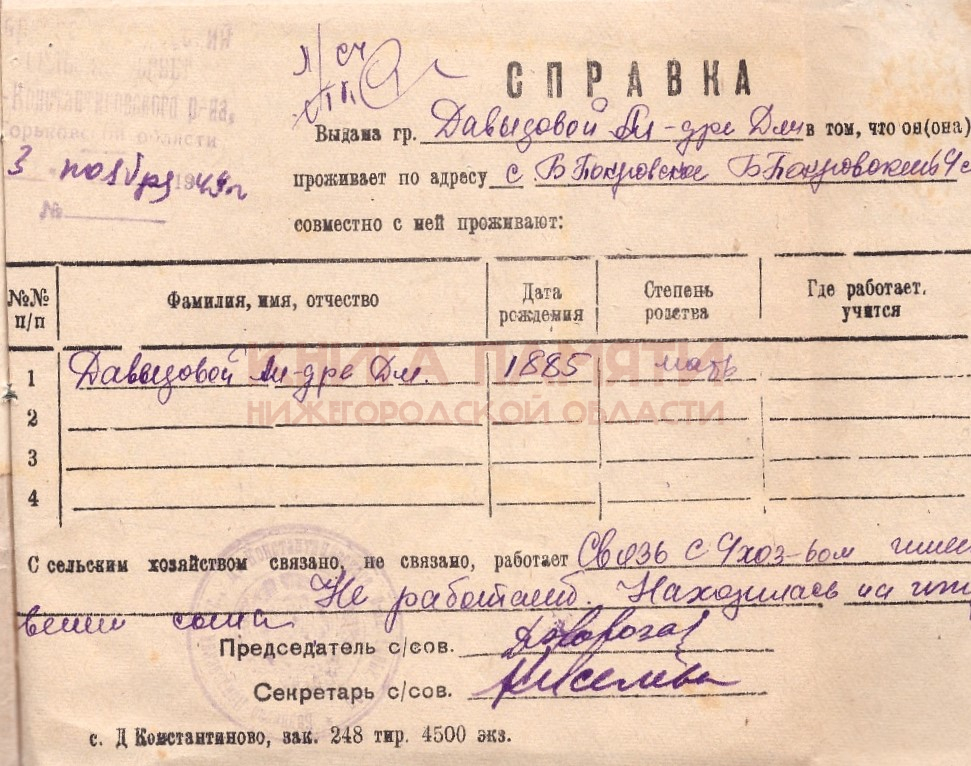 л/сч
СПРАВКА
Константиновского р-на,
Горьковской области
3 ноября 1949 г
№
Выдана гр. Давыдовой Ал-дре Дм в том, что он(она)
проживает по адресу с Б Покровское Б Покровского с/с
совместно с ней проживают:
№№ п/п
Фамилия, имя, отчество
Дата рождения
Степень родства
Где работает, учится
1 Давыдовой Ал-дре Дм. 1885 мать
2
3
4
КНИГА ПАМЯТИ
НИЖЕГОРОДСКОЙ ОБЛАСТИ
С сельским хозяйством связано, не связано, работает Связь с с/хоз-вом имеет
Не работает. Находилась на ижди
вении сына
Председатель с/сов.
Секретарь с/сов. Киселева
с. Д Константиново, зак. 248 тир. 4500 экз.